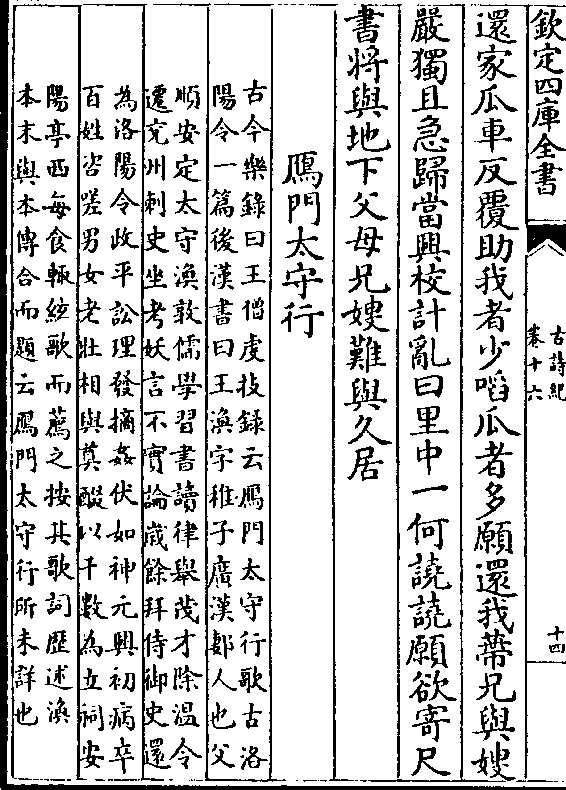 欽定四庫全書
古詩紀
卷十六
十四
還家瓜車反覆助我者少啗瓜者多願還我蔕兄與嫂
嚴獨且急歸當興校計亂曰里中一何譊譊願欲寄尺
書将與地下父母兄嫂難與久居
鴈門太守行
古今樂錄曰王僧䖍技録云鴈門太守行歌古洛
陽令一篇後漢書曰王渙字稚子廣漢郪人也父
順安定太守渙敦儒學習書讀律舉茂才除温令
遷兖州刺史坐考妖言不實論嵗餘拜侍御史還
為洛陽令政平訟理發擿姦伏如神元興初病卒
百姓咨嗟男女老壯相與奠醊以千數為立祠安
陽亭西每食輒絃歌而薦之按其歌詞歴述渙
本末與本傳合而題云鴈門太守行所未詳也